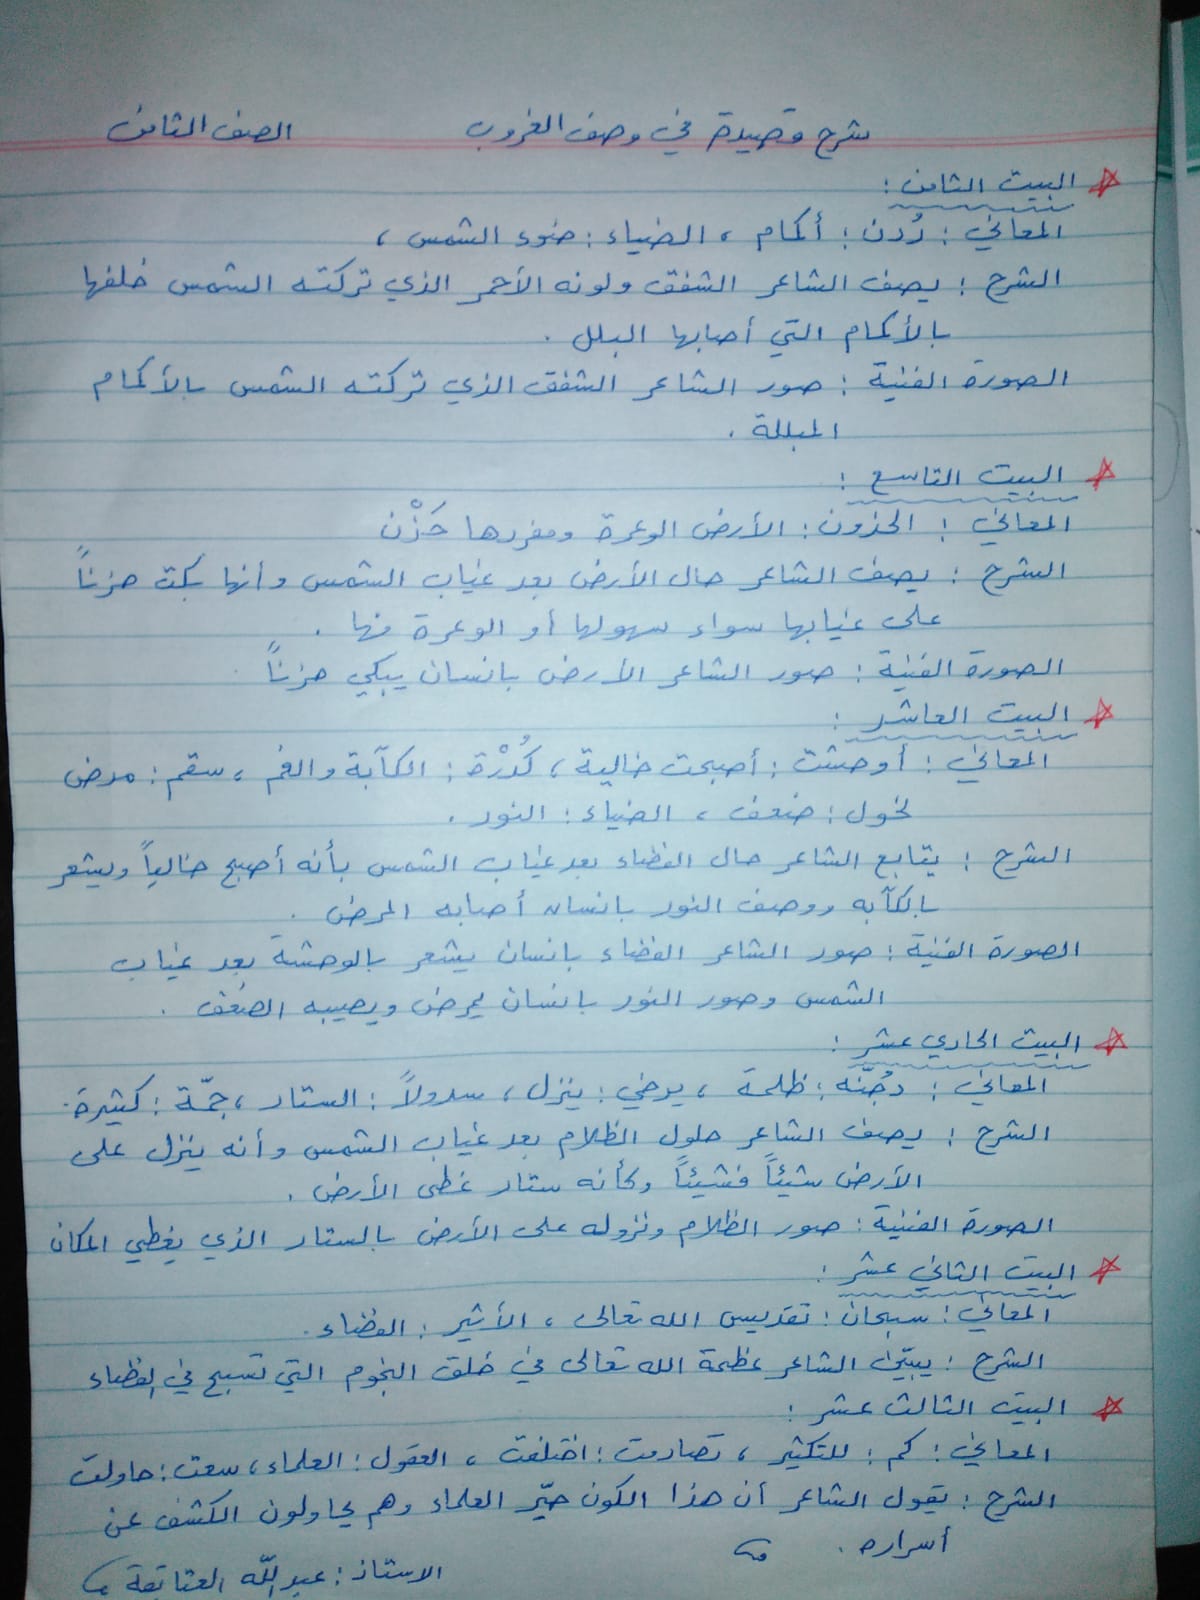 شرح قصيدة في وصف الغروب الصف الثامن
البيت الثامن :
المعاني : رُدن : أكمام ، الضياء : ضوء الشمس ،
الشرح : يصف الشاعر الشفق ولونه الأحمر الذي تركته الشمس خلفها
بالأكمام التي أصابها البلل .
الصورة الفنية : صور الشاعر الشفق الذي تركته الشمس بالأكمام
المبللة .
البيت التاسع :
المعاني : الحزون : الأرض الوعرة ومفردها حَزْن
الشرح : يصف الشاعر حال الأرض بعد غياب الشمس وأنها بكت حزناً
على غيابها سواء سهولها أو الوعرة منها .
الصورة الفنية : صور الشاعر الأرض بانسان يبكي حزناً
البيت العاشر :
المعاني : أوحشت : أصبحت خالية ، كُدْرة : الكآبة والغم ، سقم : مرض
نحول : ضعف ، الضياء : النور .
الشرح : يتابع الشاعر حال الفضاء بعد غياب الشمس بأنه أصبح خالياً ويشعر
بالكآبه ووصف النور بانسان أصابه المرض .
الصورة الفنية : صور الشاعر الفضاء بانسان يشعر بالوحشة بعد غياب
الشمس وصور النور بانسان يمرض ويصيبه الضعف .
البيت الحادي عشر :
المعاني : دُجنّه : ظلمة ، يرخي : ينزل ، سدولاً : الستار ، جمّة : كثيرة .
الشرح : يصف الشاعر حلول الظلام بعد غياب الشمس وأنه ينزل على
الأرض شيئاً فشيئاً وكأنه ستار غطى الأرض .
الصورة الفنية : صور الظلام ونزوله على الأرض بالستار الذي يغطي المكان
البيت الثاني عشر :
المعاني : سبحان : تقديس الله تعالى ، الأثير : الفضاء .
الشرح : يبيّن الشاعر عظمة الله تعالى في خلق النجوم التي تسبح في الفضاء
البيت الثالث عشر :
المعاني : كم : للتكثير ، تصادمت : اختلفت ، العقول : العلماء ، سعت : حاولت
الشرح : يقول الشاعر أن هذا الكون حيّر العلماء وهم يحاولون الكشف عن
أسراره .
الاستاذ : عبدالله العتايقة